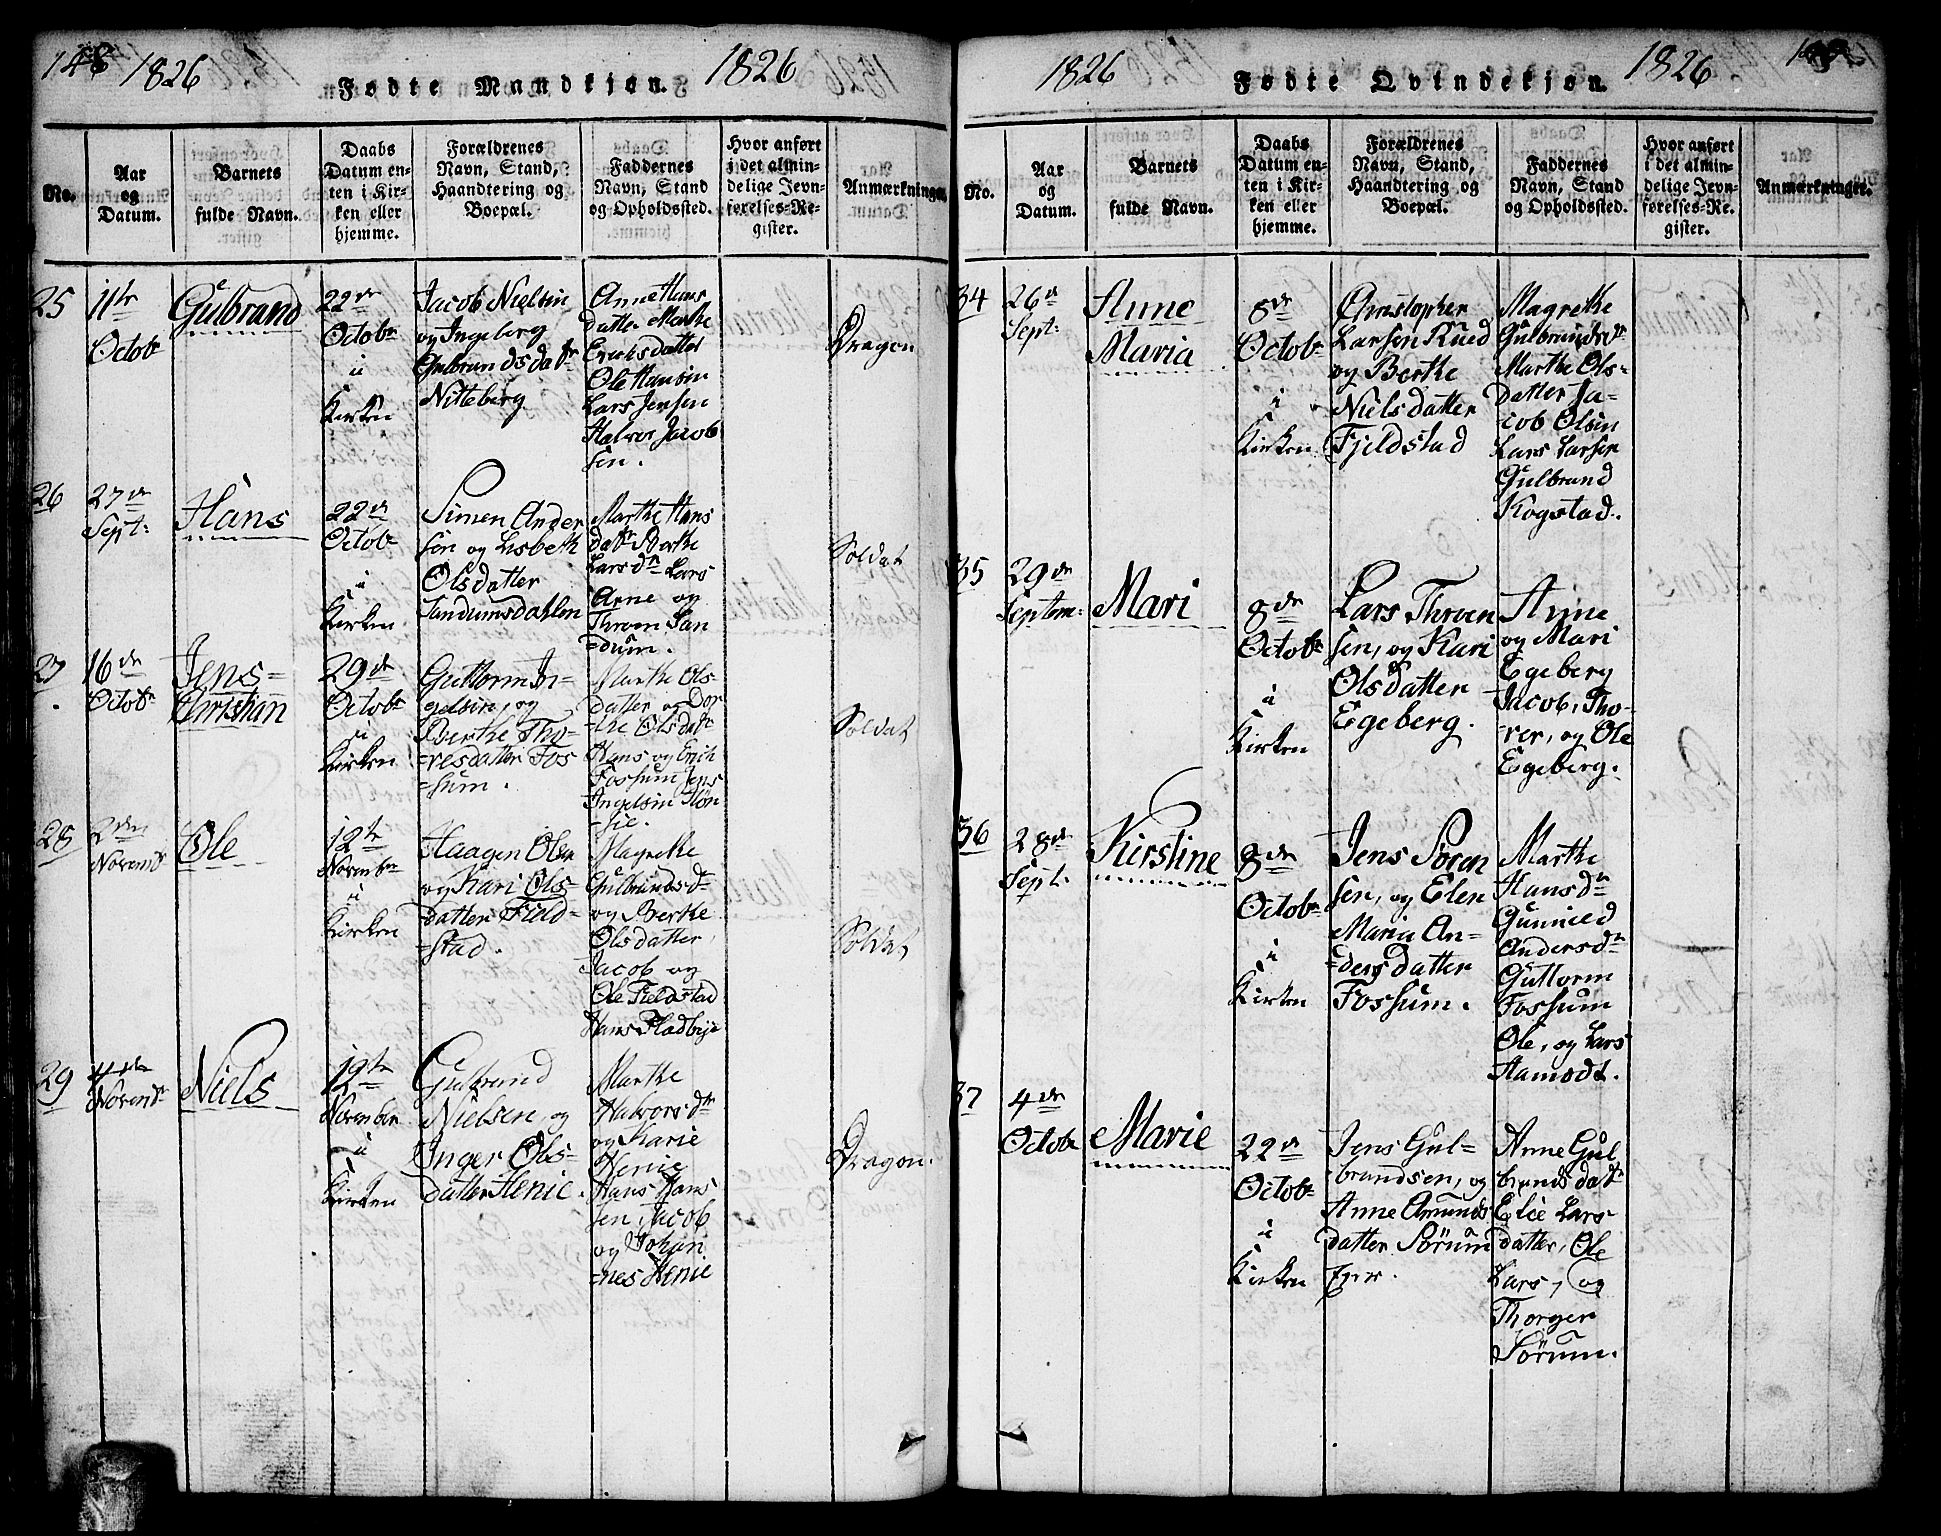 148 1826 Fødte Mandkjøn. 1826
No.
Aar
og
Datum.
Barnets
fulde Navn.
Daabs
Datum en-
ten i Kir-
ken eller
hjemme.
Forældrenes
Navn, Stand,
Haandtering og
Boepæl.
Faddernes
Navn, Stand
og Opholdssted.
Hvor anført
i det almin-
delige Jevn-
førelses-Re-
gister.
Anmærkninger.
25
11te
Octobr
Gulbrand
22de
Octobr
i
Kirken
Jacob Nielsen
og Ingeberg
Gulbrandsdatr
Nitteberg
Anne Hans
datter Marthe
Erichsdatter
Ole Hansen
Lars Jensen
Halvor Jacob
sen.
Dragon
26
27de
Sept:
Hans
22de
Octobr
i
Kirken
Simen Ander
sen og Lisbeth
Olsdatter
Sandumsdahlen
Marthe Hans
datr Berthe
Larsdr Lars
Arne og
Throen San
dum.
Soldat
27
16de
Octobr
Jens-
Christian
29de
Octobr
i
Kirken
Guttorm In-
gelsin, og
Berthe Tho-
=resdatter Fos
=sum.
Marthe Ols-
datter og Dor
=the Olsdatr
Hans og Erich
Fossum Jens
Ingelsin Høn
=sie.
Soldat
28
2den
Novembr
Ole
12te
Novembr
i
Kirken
Haagen Olsen
og Kari Ols-
datter Field-
=stad.
Magrethe
Gulbrandsdr
og Berthe
Olsdatter,
Jacob og
Ole Fieldstad
Hans Fladbye
Soldat
29
4de
Novembr
Niels
12te
November
i
Kirken
Gulbrand
Nielsen og
Inger Ols-
datter Henie.
Marthe
Halvorsdtr
og Karie
Henie
Hans Hans
sen, Jacob
og Johan
=nes Henie
Dragon.
1826 Fødte Qvindekjøn. 1826 149
No.
Aar
og
Datum.
Barnets
fulde Navn.
Daabs
Datum en-
ten i Kir-
ken eller
hjemme.
Forældrenes
Navn, Stand,
Haandtering og
Boepæl.
Faddernes
Navn, Stand
og Opholdssted.
Hvor anført
i det almin-
delige Jevn-
førelses-Re-
gister.
Anmærkninger.
34
26de
Sept:
Anne
Maria
8de
Octobr
i
Kirken
Christopher
Larsen Rued
og Berthe
Nielsdatter
Fjeldstad
Magrethe
Gulbrandsdr
Marthe Ols-
datter Ja-
cob Olsen
Lars Larsen
Gulbrand
Kogstad.
35
29de
Septem:
Mari
8de
Octobr
i
Kirken
Lars Throen
sen, og Kari
Olsdatter
Egeberg.
Anne
og Mari
Egeberg
Jacob, Tho-
rer, og Ole
Egeberg.
36
28de
Sept:
Kirstine
8de
Octobr
i
Kirken
Jens Søren
sen, og Elen
Maria An-
=dersdatter
Fossum.
Marthe
Hansdr
Gunnild
Andersdr
Guttorm
Fossum
Ole, og Lars
Aamodt.
37
4de
Octobr
Marie
22de
Octobr
i
Kirken
Jens Gul-
brandsen, og
Anne Amunds
datter Sørum
Anne Gul
brandsdatr
Elie Lars
datter, Ole
Lars, og
Thorger
Sørum.